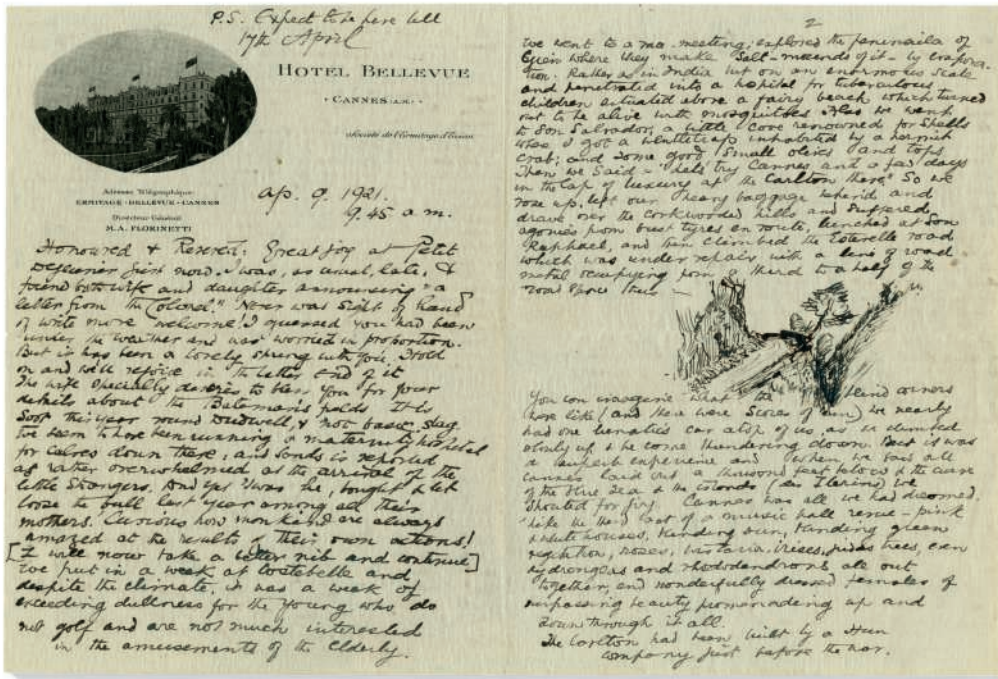 P.S. Expect to be here till
17th April
HOTEL BELLEVUE
CANNES (A.M.)
Société de l'Ermitage d'Evian
Adresse Télégraphique:
ERMITAGE-BELLEVUE-CANNES
Directeur Général
M.A. FLORINETTI
Ap. 9. 1921.
9.45 a.m.
Honoured & Revered: Great joy at Petit
Dejeuner just now. I was, as usual, late, &
found both wife and daughter announcing "a
letter from the Colonel." Never was sight of hand
of write more welcome! I guessed you had been
under the weather and was worried in proportion.
But it has been a lovely spring with you. Hold
on and will rejoice in the latter end of it
The wife specially desires to bless you for your
details about the Bateman's fields It is
Soot this year round Dudwell, & not basic slag.
We seem to have been running a maternity hospital
for calves down there, and Sands is reported
as rather overwhelmed at the arrival of the
little strangers. And yet 'twas he, bought & let
loose the bull last year among all their
mothers. Curious how mankind are always
amazed at the results of their own actions!
[I will now take a better nib and continue]
We put in a week at Costebelle and
despite the climate, it was a week of
exceeding dullness for the young who do
not golf and are not much interested
in the amusements of the Elderly.
2
We went to a meeting; explored the peninsula of
Gien where they make Salt - mounds of it - by evapora-
tion. Rather as in India but on an enormous scale
and penetrated into a hospital for tuberculous
children situated above a fairy beach which turned
out to be alive with mosquitoes Also we went
to San Salvador, a little cove renowned for Shells
where I got a wentletrap inhabited by a hermit
crab; and some good small olives and tops
Then we said - "Let's try Cannes and a few days
in the lap of luxury at the Carlton there" So we
rose up, left our heavy baggage behind and
drave over the corkwooded hills and suffered
agonies from burst tyres en route, lunched at San
Raphael, and then climbed the Esterelle road
which was under repair with a line of road
metal occupying from a third to a half of the
road space thus -
You can imagine what the blind corners
were like (and there were scores of 'em) we nearly
had one lunatic's car atop of us, as we climbed
slowly up & he come thundering down. But it was
a superb experience and when we saw all
Cannes laid out a thousand feet below & the curve
of the blue sea & the islands (des Ilerins) we
shouted for joy. Cannes was all we had dreamed.
like the third act of a music hall revue - pink
& white houses, blinding sun, blinding green
vegetation, roses, wistaria, irises, judas trees,
hydrangeas and rhododendrons all out
together, and wonderfully dressed females of
surpassing beauty promenading up and
down through it all.
The Carlton had been built by a Hun
company just before the war.